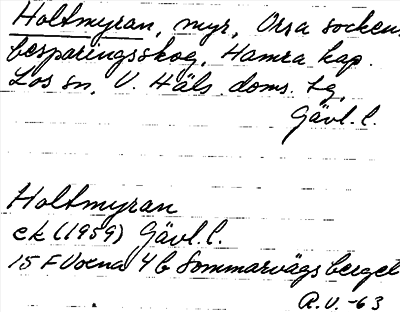 Holtmyran, myr, Orsa socken
besparingsskog, Hamra kap.
Los sn, V. Häls. doms. tg,
Gävl. l.
Holtmyran
ek (1959) Gävl. l.
15 F Voxna 4 b Sommarvägsberget
R.V. -63